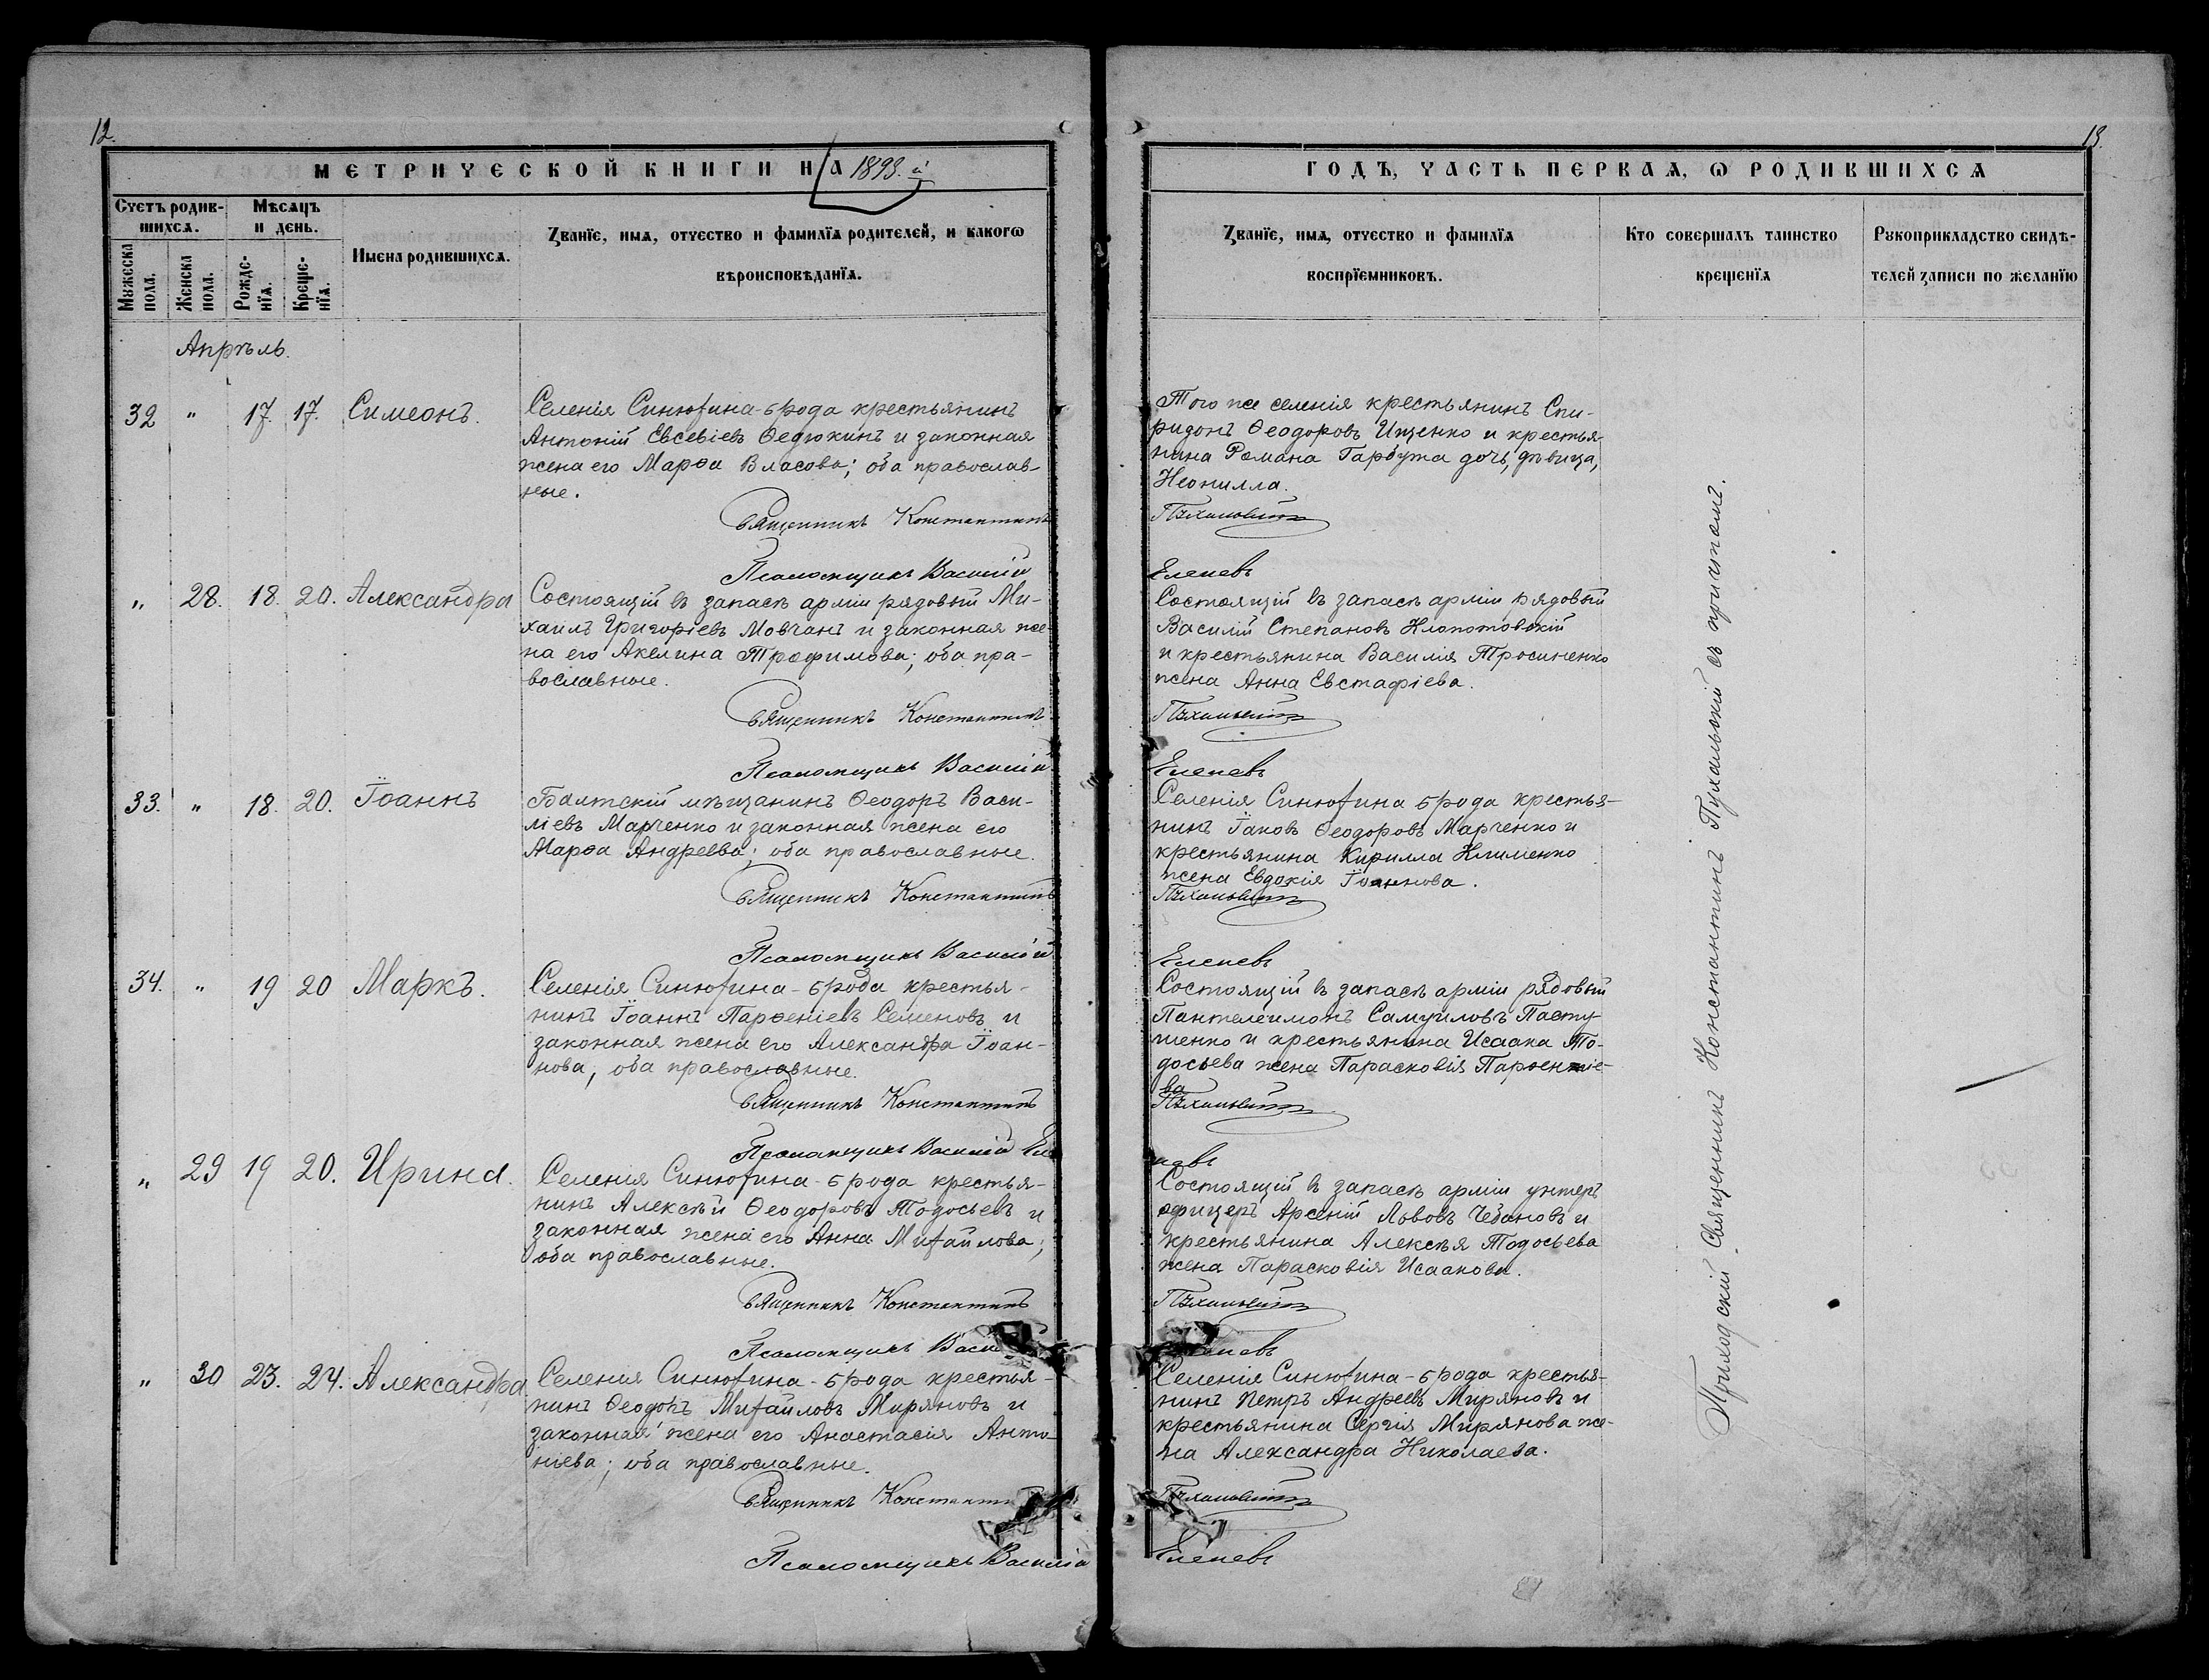 12.
МЕТРИЧЕСКОЙ КНИГИ НА 1893.й
Счетъ родив-
шихсѧ.
Мѣсѧцъ
и день.
Мужеска
пола.
Женска
пола.
Рожде-
нїѧ.
Креще-
нїѧ.
Имена родившихсѧ.
Званїе, имѧ, отчество и фамилїѧ родителей, и какогѡ
вѣроисповѣданїѧ.
Апрѣль.
32 " 17. 17. Симеонъ.
Селенія Синюхина-брода крестьянинъ
Антоній Евсевіевъ Ѳедюкинъ и законная
жена его Марѳа Власова; оба православ-
ные.
Священникъ Константинъ
Псаломщикъ Василій
" 28. 18. 20. Александра
Состоящій въ запасѣ арміи рядовый Ми-
хаилъ Григоріевъ Мовчанъ и законная же-
на его Акелина Трофимова; оба пра-
вославные.
Священникъ Константинъ
Псаломщикъ Василій
33. " 18. 20. Іоаннъ
Балтскій мѣщанинъ Ѳеодоръ Васи-
ліевъ Марченко и законная жена его
Марѳа Андреева; оба православные.
Священникъ Константинъ
Псаломщикъ Василій
34. " 19 20 Маркъ.
Селенія Синюхина-брода крестья-
нинъ Іоаннъ Парѳеніевъ Семеновъ и
законная жена его Александра Іоан-
нова, оба православные.
Священникъ Константинъ
Псаломщикъ Василій Еле
" 29 19 20. Ирина.
Селенія Синюхина-брода крестья-
нинъ Алексѣй Ѳеодоровъ Тодосьевъ и
законная жена его Анна Михайлова;
оба православные.
Священникъ Константинъ
Псаломщикъ Васи
" 30 23. 24. Александра
Селенія Синюхина-брода крестья-
нинъ Ѳеодоръ Михайловъ Миряновъ и
законная жена его Анастасія Анто-
ніева; оба православные.
Священникъ Константи
Псаломщикъ Василій
13.
ГОДЪ, ЧАСТЬ ПЕРВАѦ, Ѡ РОДИВШИХСѦ
Званїе, имѧ, отчество и фамилїѧ
воспрїемниковъ.
Кто совершалъ таинство
крещенїѧ
Рукоприкладство свидѣ-
телей записи по желанїю
Того же селенія крестьянинъ Спи-
ридонъ Ѳеодоровъ Ищенко и крестья-
нина Романа Гарбужа дочь, дѣвица,
Неонилла.
Пухальскій
Еленевъ
Состоящій въ запасѣ арміи рядовый
Василій Степановъ Клопотовскій
и крестьянина Василія Тросиненко
жена Анна Евстафіева.
Пухальскій
Еленевъ
Селенія Синюхина брода крестья-
нинъ Іаковъ Ѳеодоровъ Марченко и
крестьянина Кирилла Клименко
жена Евдокія Іоаннова.
Пухальскій
Еленевъ
Состоящій въ запасѣ арміи рядовый
Пантелеимонъ Самуиловъ Пасту-
шенко и крестьянина Исаака То-
досьева жена Парасковія Парѳеніе-
ва
Пухальскій
невъ
Состоящій въ запасѣ арміи унтеръ
офицеръ Арсеній Львовъ Чебановъ и
крестьянина Алексѣя Тодосьева
жена Парасковія Исаакова.
Пухальскій
Еленевъ
Селенія Синюхина-брода крестья-
нинъ Петръ Андреевъ Миряновъ и
крестьянина Сергія Мирянова же-
на Александра Николаева.
Пухальскій
Еленевъ
Приходскій Священникъ Константинъ Пухальскій съ причтомъ.